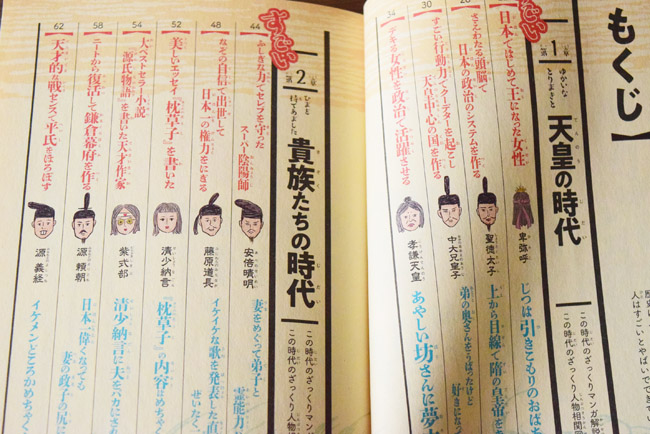 もくじ
すごい
第1章
ゆかいな
とりまきと
天皇の時代
この時代のざっくりマンガ解説
この時代のざっくり人物相関図
日本ではじめて王になった女性
卑弥呼
じつは引きこもりのおばあ
さえわたる頭脳で
日本の政治のシステムを作る
聖徳太子
上から目線で隋の皇帝を
30
すごい行動力でクーデターを起こし
天皇中心の国を作る
中大兄皇子
弟の奥さんをうばったけど
好きになっ
34
デキる女性を政治で活躍させる
孝謙天皇
あやしい坊さんに夢
すごい
第2章
ひょと
持てあました
貴族たちの時代
この時代のざっくりマンガ
この時代のざっくり人物
44
ふしぎな力でセレブを守った
スーパー陰陽師
安倍晴明
妻をめぐって弟子と
霊能力
48
なぞの自信で出世して
日本一の権力をにぎる
藤原道長
イケイケな歌を発表した直
せいたく
52
美しいエッセイ『枕草子』を書いた
清少納言
『枕草子』の内容はめちゃく
54
大ベストセラー小説
『源氏物語』を書いた天才作家
紫式部
清少納言に夫をバカにされ
58
ニートから復活して鎌倉幕府を作る
源頼朝
日本一偉くなっても
妻の政子の尻に
62
天才的な戦センスで平氏をほろぼす
源義経
イケメンどころかめちゃく